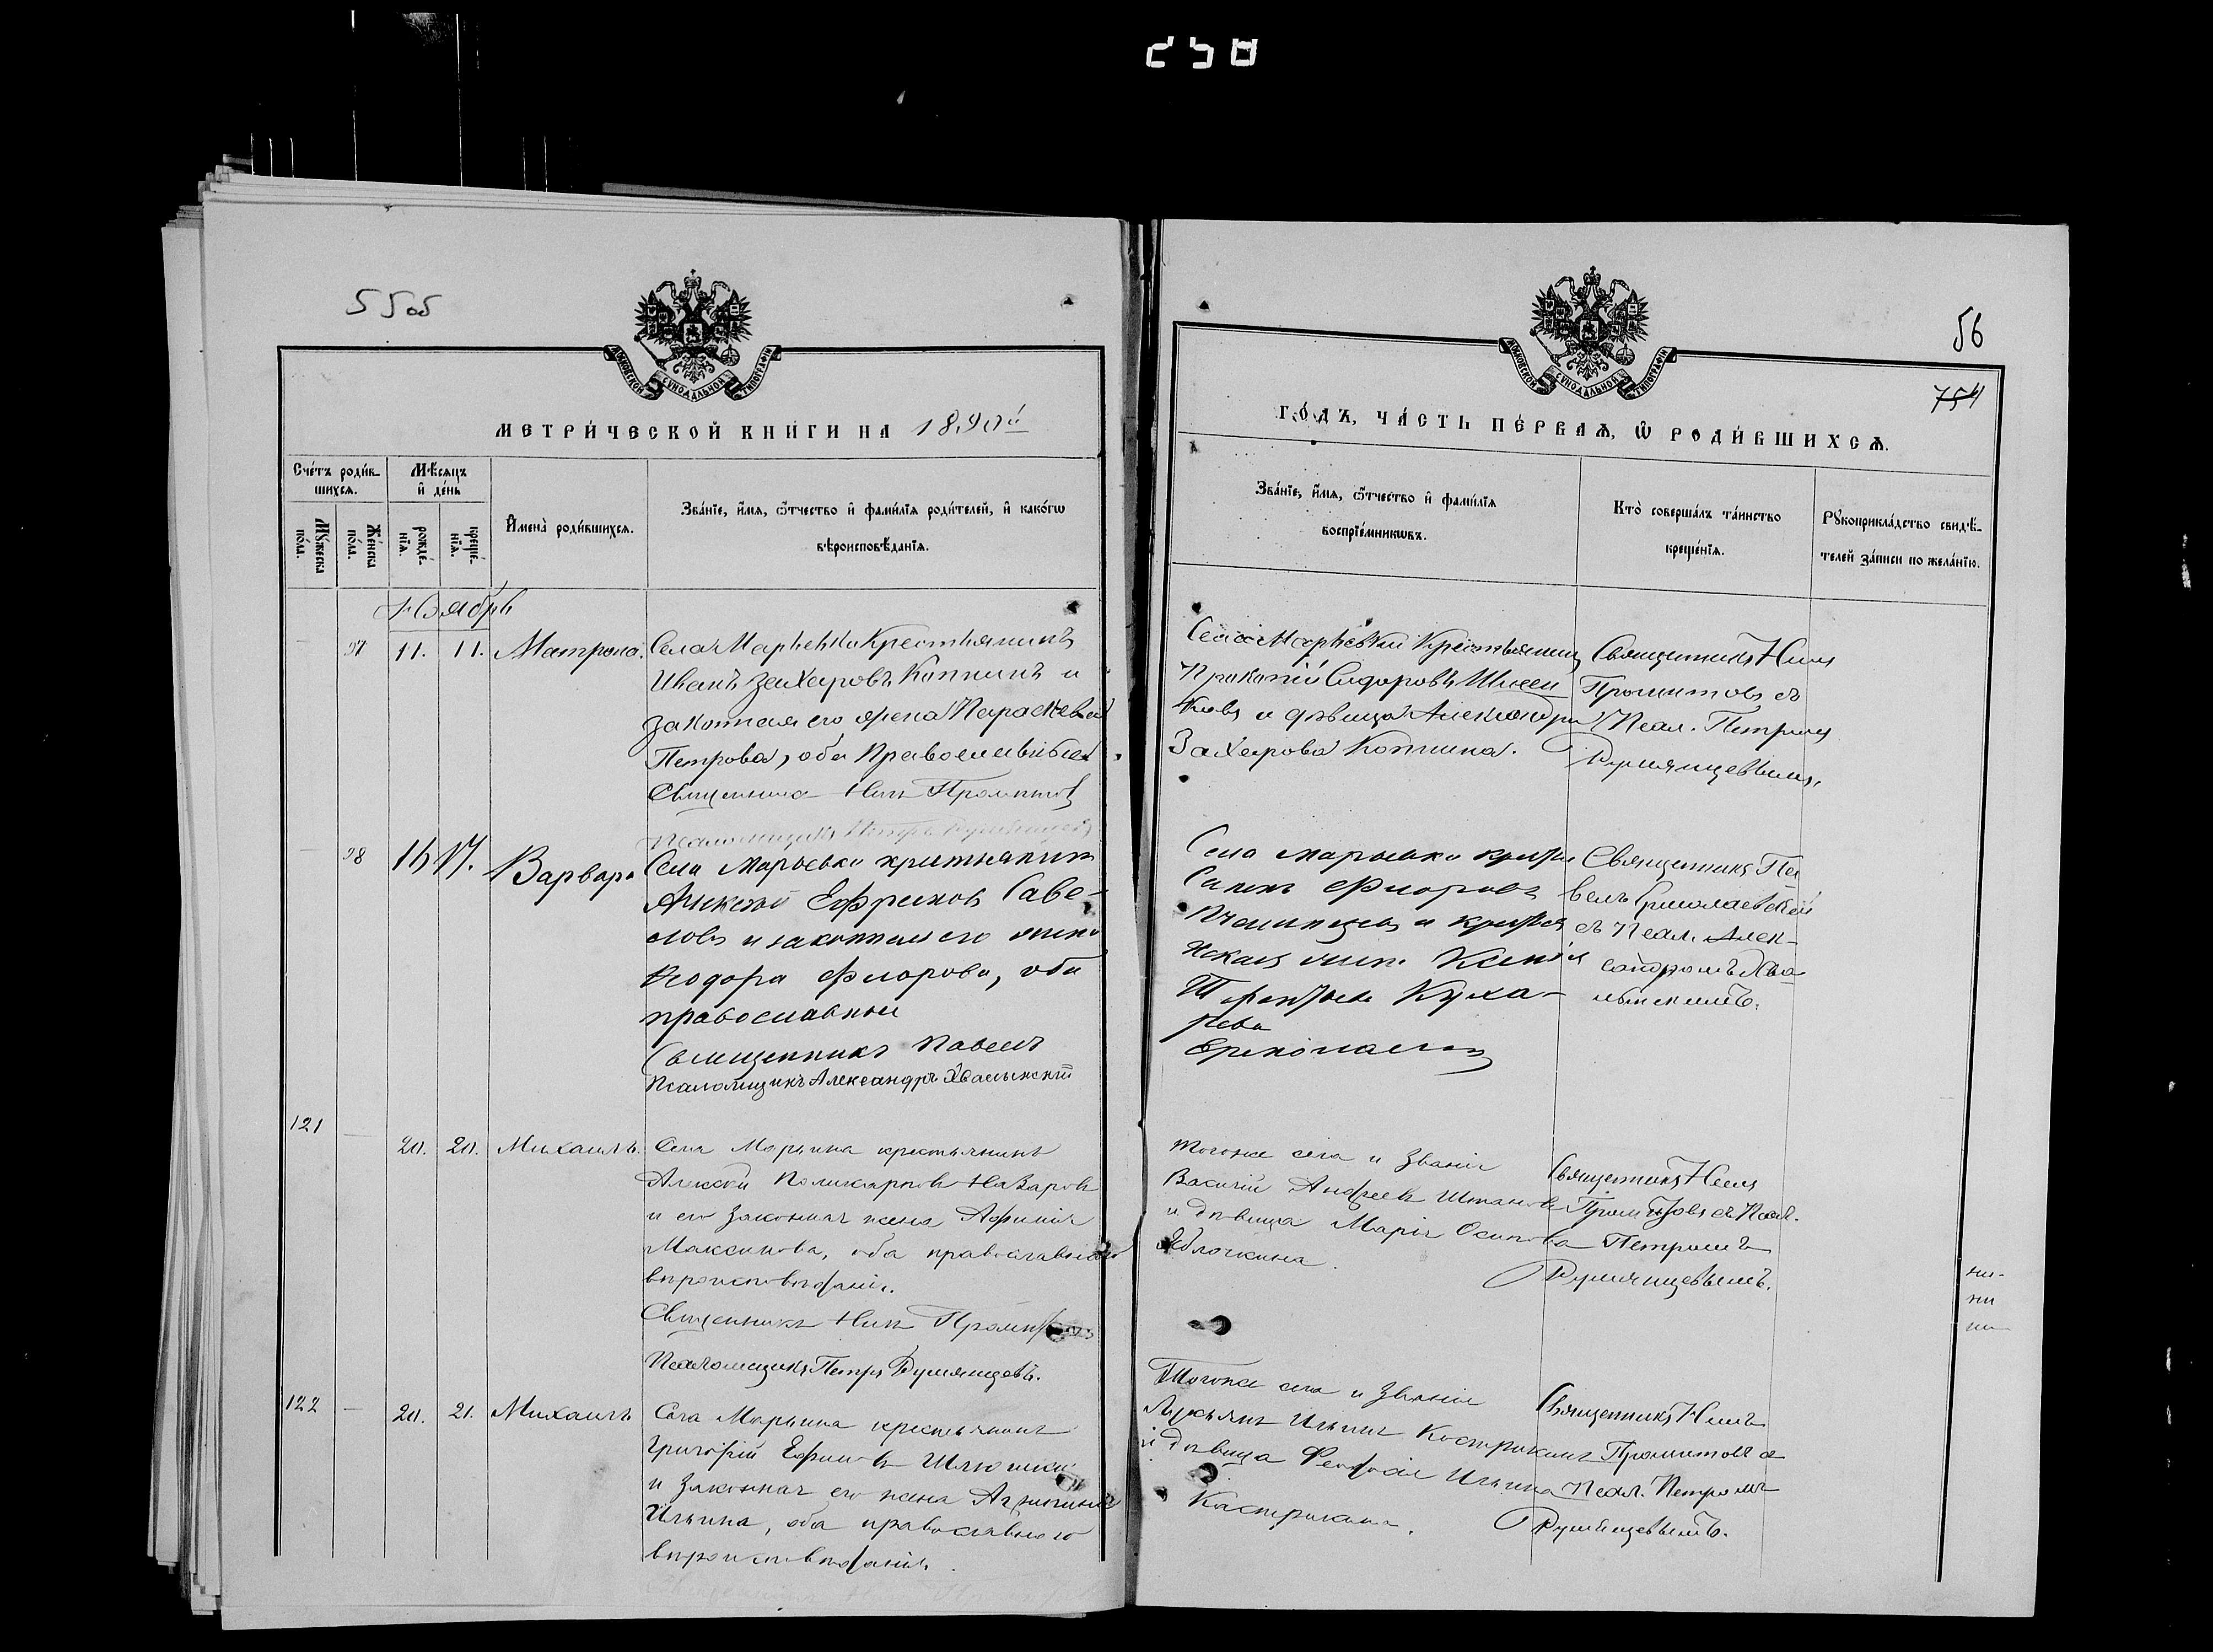 55 об
МЕТРИ́ЧЕСКОЙ КНИ́ГИ НА 1890й
Сче́тъ роди́в-
шихсѧ.
Мѣ́сѧцъ
и҆ де́нь
Мꙋ́жеска
по́ла.
Же́нска
по́ла.
рожде́-
нїѧ.
креще́-
нїѧ.
И҆мена̀ роди́вшихсѧ.
Зва́нїе, и҆́мѧ, ѻ҆́тчество и҆ фами́лїѧ роди́телей, и҆ како́гѡ
вѣроисповѣ́данїѧ.
Ноябрь
97 11. 11. Матрона.
Села Марьевки Крестьянинъ
Иванъ Захаровъ Коттинъ и
законная его жена Параскева
Петрова, оба Православные
Священникъ Нилъ Промптовъ
Псаломщикъ Петръ Румянцевъ
98 16 17. Варвара
Села Марьевки
Алексѣй Ефремов Саве-
ловъ и законная его жена
Ѳеодора Флорова, оба
православныи
Священникъ Павелъ
Псаломщикъ Александръ Хвалынскій
121 20. 20. Михаилъ.
Села Марьина крестьянинъ
Алексѣй Поликарповъ Назаровъ
и его законная жена Афимія
Максимова, оба православнаго
вѣроисповѣданія.
Священникъ Нилъ Промптовъ
Псаломщикъ Петръ Румянцевъ.
122 20. 21. Михаилъ
Села Марьина крестьянинъ
Григорій Ефимовъ
и законная его жена Агрипина
Ильина, оба православнаго
вѣроисповѣданія.
56
754
ГО́ДЪ, ЧА́СТЬ ПЕ́РВАѦ, Ѡ҆ РОДИ́ВШИХСѦ.
Зва́нїе, и҆́мѧ, ѻ҆́тчество и҆ фами́лїѧ
воспрїе́мникѡвъ.
Кто̀ соверша́лъ та́инство
креще́нїѧ.
Рꙋкоприкла́дство свидѣ́-
телей за́писи по жела́нїю.
Села Марьевки Крестьянинъ
Прокопій Сидоровъ
и дѣвица Александра
Захарова Коттина.
Священникъ Нилъ
Промптовъ съ
Псал. Петромъ
Румянцевымъ.
Села Марьевки
Флоровъ
Пчелинцевъ и
жена Ксенія
Терентьева Куха-
рева
Священникъ Па-
велъ
съ Псал. Алек-
сандромъ Хва-
лынскимъ.
тогоже села и званія
Василій Андреевъ Штановъ
и дѣвица Марія Осипова
Яблочкина.
Священникъ Нилъ
Промптовъ съ Псал.
Петромъ
Румянцевымъ.
Тогоже села и званія
Лукьянъ Ильинъ Кострикинъ
и дѣвица Феодосія Ильина
Кострикина.
Священникъ Нилъ
Промптовъ съ
Псал. Петромъ
Румянцевымъ.